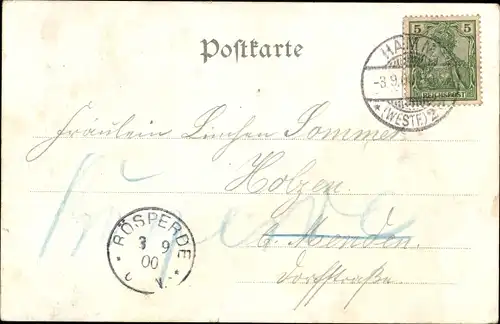 5 5
REICHSPOST
HAMM
-3.9.
*(WESTF.)2*
Postkarte
Fräulein Linchen Sommer
Holzen
b. Menden
Dorfstraße.
* RÖSPERDE *
3 9
00
V.